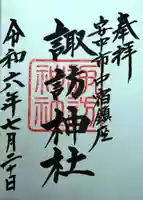 奉拝
安中市中宿鎮座
諏訪神社
令和六年七月二十日